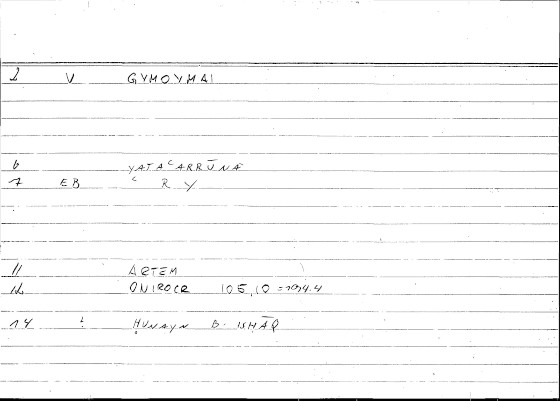 2 V GYMOYMAI
6 YATAʿARRŪNA
7 EB ʿ R Y
11 ARTEM
12 ONIROCR 105,10 = 194.4
14 : ḤUNAYN B. ISḤĀQ